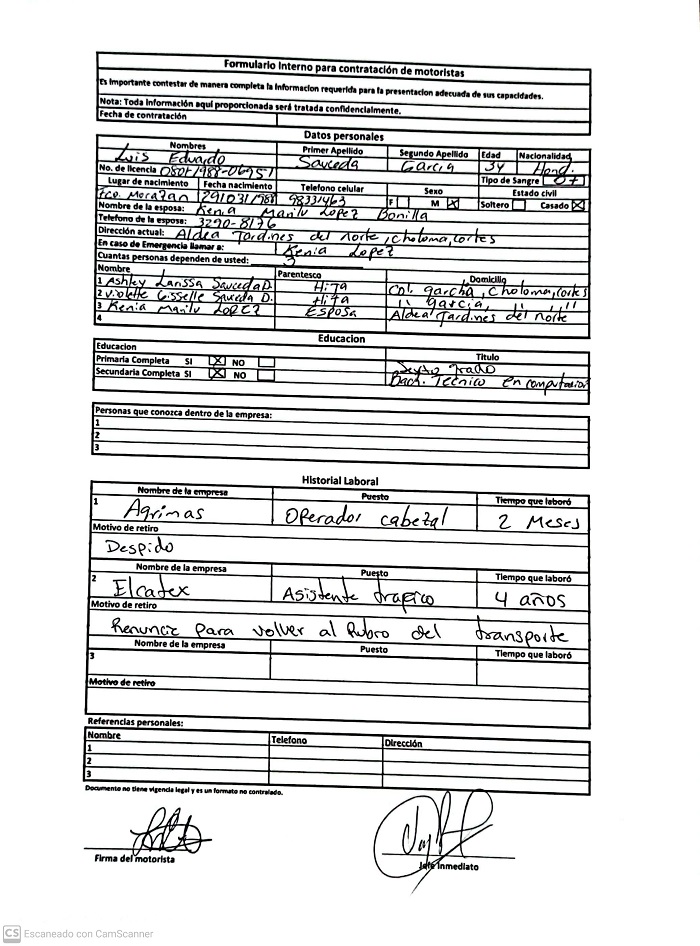 Formulario Interno para contratación de motoristas
Es importante contestar de manera completa la informacion requerida para la presentacion adecuada de sus capacidades.
Nota: Toda información aquí proporcionada será tratada confidencialmente.
Fecha de contratación
Datos personales
Nombres Primer Apellido Segundo Apellido Edad Nacionalidad
Luis Eduardo Sauceda Garcia 34 Hond.
No. de licencia 0801-1988-06951 Tipo de Sangre O+
Lugar de nacimiento Fecha nacimiento Telefono celular Sexo Estado civil
Fco. Morazan 29/03/1988 98331463 F M X Soltero Casado X
Nombre de la esposa: Kenia Marilu Lopez Bonilla
Telefono de la esposa: 3290-8176
Dirección actual: Aldea Jardines del norte, choloma, cortes
En caso de Emergencia llamar a: Kenia Lopez
Cuantas personas dependen de usted: 3
Nombre Parentesco Domicilio
1 Ashley Larissa Sauceda D. Hija Col. garcia, choloma, cortes
2 Violette Gisselle Sauceda D. Hija '' Garcia, ''
3 Kenia Marilu LOPEZ Esposa Aldea Jardines del norte
4
Educacion
Educacion Titulo
Primaria Completa SI X NO Sexto Grado
Secundaria Completa SI X NO Bach. Tecnico en computacion
Personas que conozca dentro de la empresa:
1
2
3
Historial Laboral
Nombre de la empresa Puesto Tiempo que laboró
1 Agrimas Operador cabezal 2 Meses
Motivo de retiro
Despido
Nombre de la empresa Puesto Tiempo que laboró
2 Elcatex Asistente trafico 4 años
Motivo de retiro
Renuncie para volver al Rubro del transporte
Nombre de la empresa Puesto Tiempo que laboró
3
Motivo de retiro
Referencias personales:
Nombre Telefono Dirección
1
2
3
Documento no tiene vigencia legal y es un formato no controlado.
Firma del motorista Jefe Inmediato
CS Escaneado con CamScanner